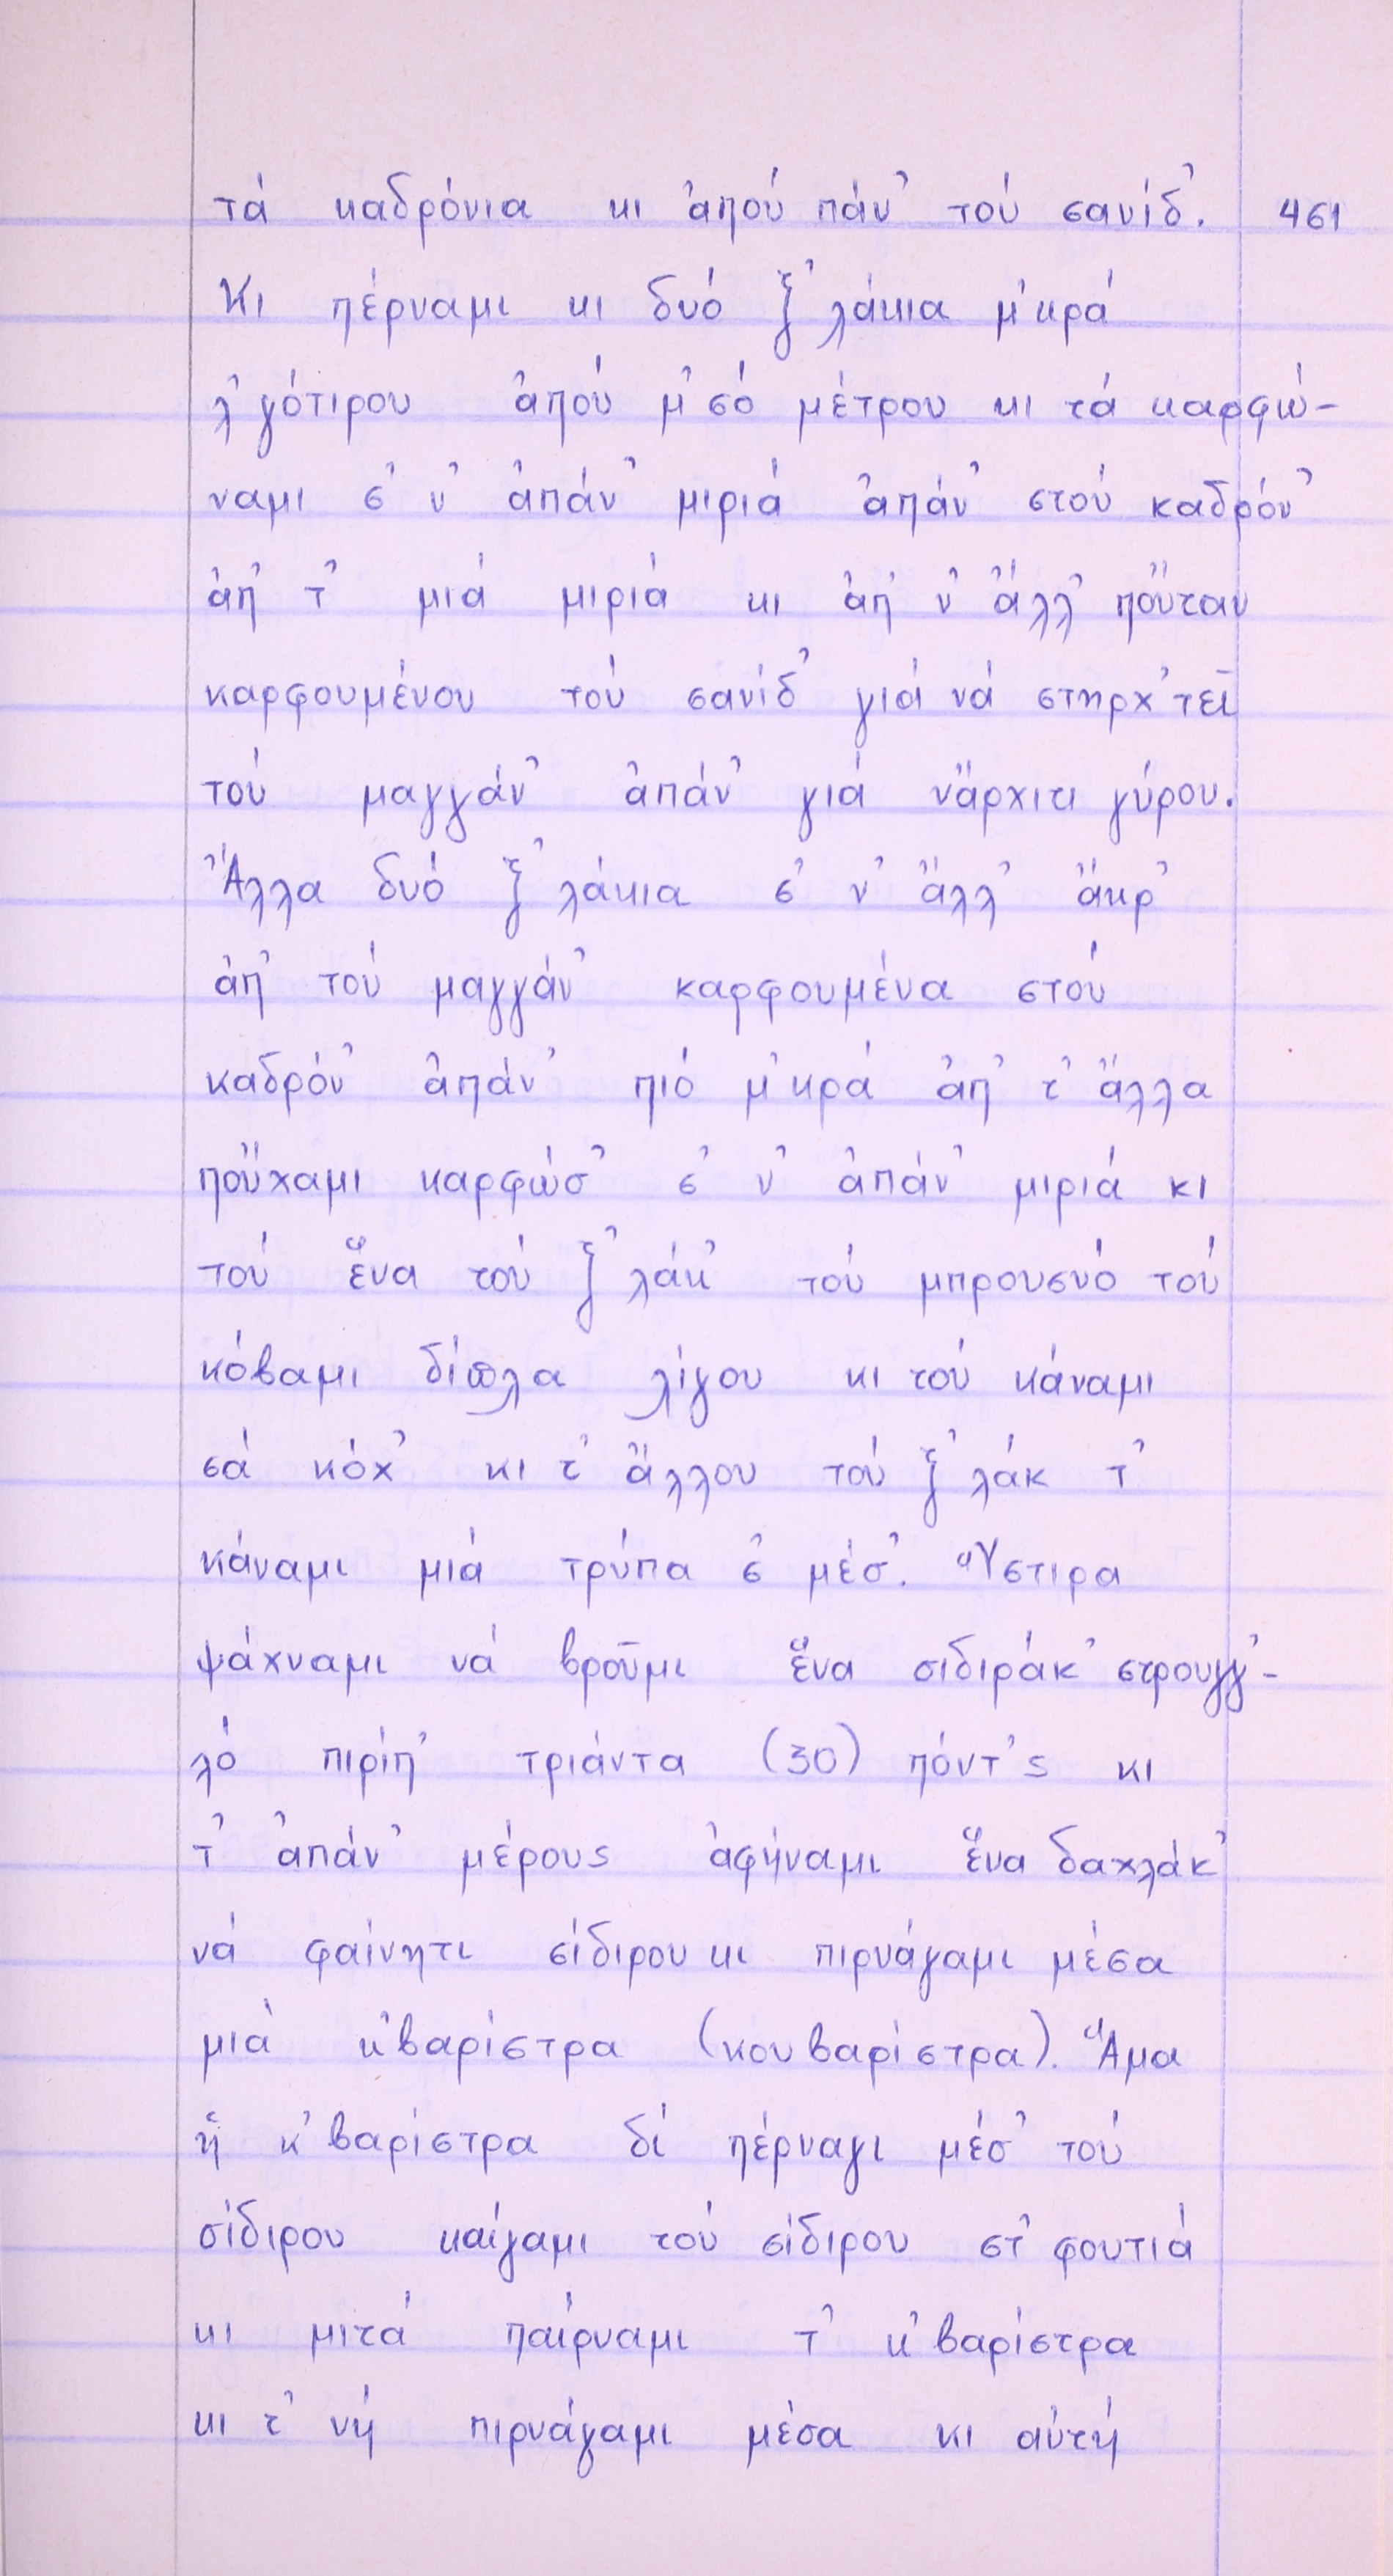 τά καδρόνια κι ἀπού πάν᾿ τού σανίδ᾿. 461
Κι πέρναμι κι δυό ξ᾿λάκια μ᾿κρά
λ᾿γότιρου ἀπού μ᾿σό μέτρου κι τά καρφώ-
ναμι σ᾿ ν᾿ ἀπάν᾿ μιριά ἀπάν᾿ στού καδρόν᾿
ἀπ᾿ τ᾿ μιά μιριά κι ἀπ᾿ ν᾿ ἄλλ᾿ ποὔταν
καρφουμένου τού σανίδ᾿ γιά νά στηρχ᾿τεῖ
τού μαγγάν᾿ ἀπάν᾿ γιά νἄρχιτι γύρου.
Ἄλλα δυό ξ᾿λάκια σ᾿ ν᾿ ἄλλ᾿ ἄκρ᾿
ἀπ᾿ τού μαγγάν᾿ καρφουμένα στού
καδρόν᾿ ἀπάν᾿ πιό μ᾿κρά ἀπ᾿ τ᾿ ἄλλα
ποὔχαμι καρφώσ᾿ σ᾿ ν᾿ ἀπάν᾿ μιριά κι
τού ἕνα τού ξ᾿λάκ᾿ τού μπρουσνό τού
κόβαμι δίπλα λίγου κι τού κάναμι
σά κόχ᾿ κι τ᾿ ἄλλου τού ξ᾿λάκ τ᾿
κάναμι μιά τρύπα σ᾿ μέσ᾿. Ὕστιρα
ψάχναμι νά βροῦμι ἕνα σιδιράκ᾿ στρουγγ᾿-
λό πιρίπ᾿ τριάντα (30) πόντ᾿ς κι
τ᾿ ἀπάν᾿ μέρους ἀφήναμι ἕνα δαχλάκ᾿
νά φαίνητι σίδιρου κι πιρνάγαμι μέσα
μιά κ᾿βαρίστρα (κουβαρίστρα). Ἅμα
ἡ κ᾿βαρίστρα δί πέρναγι μέσ᾿ τού
σίδιρου καίγαμι τού σίδιρου στ᾿ φουτιά
κι μιτά παίρναμι τ᾿ κ᾿βαρίστρα
κι τ᾿ νή πιρνάγαμι μέσα κι αὐτή